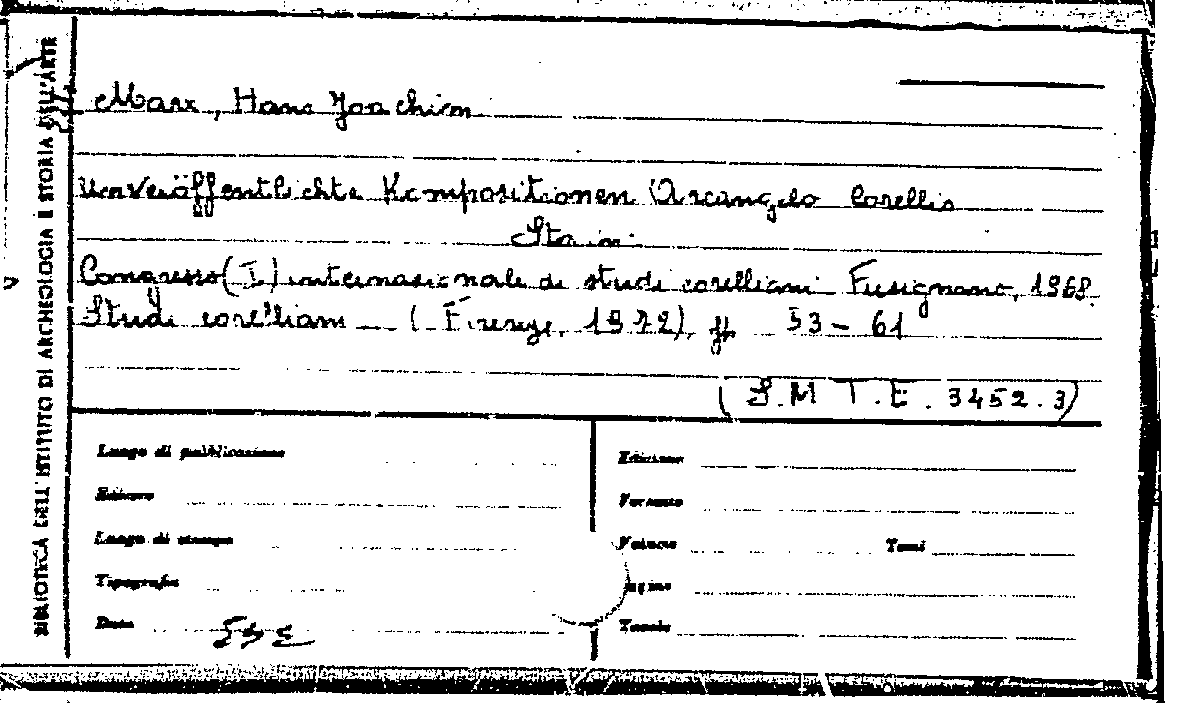 BIBLIOTECA DELL'ISTITUTO DI ARCHEOLOGIA E STORIA DELL'ARTE
Marx, Hans Joachim
Unveröffentlichte Kompositionen Arcangelo Corellis
Sta in:
Congresso (I) internazionale di studi corelliani Fusignano, 1968.
Studi corelliani (Firenze, 1972), pp 53-61
(S.M T.E. 3452.3)
Luogo di pubblicazione
Edizione
Editore
Formato
Luogo di stampa
Volume
Tomi
Tipografia
Pagine
Data
Tavole